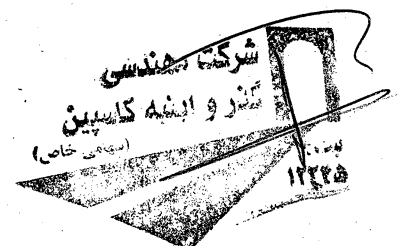 شرکت مهندسی
گذر و ابنیه کاسپین
(سهامی خاص)
۱۲۲۲۵